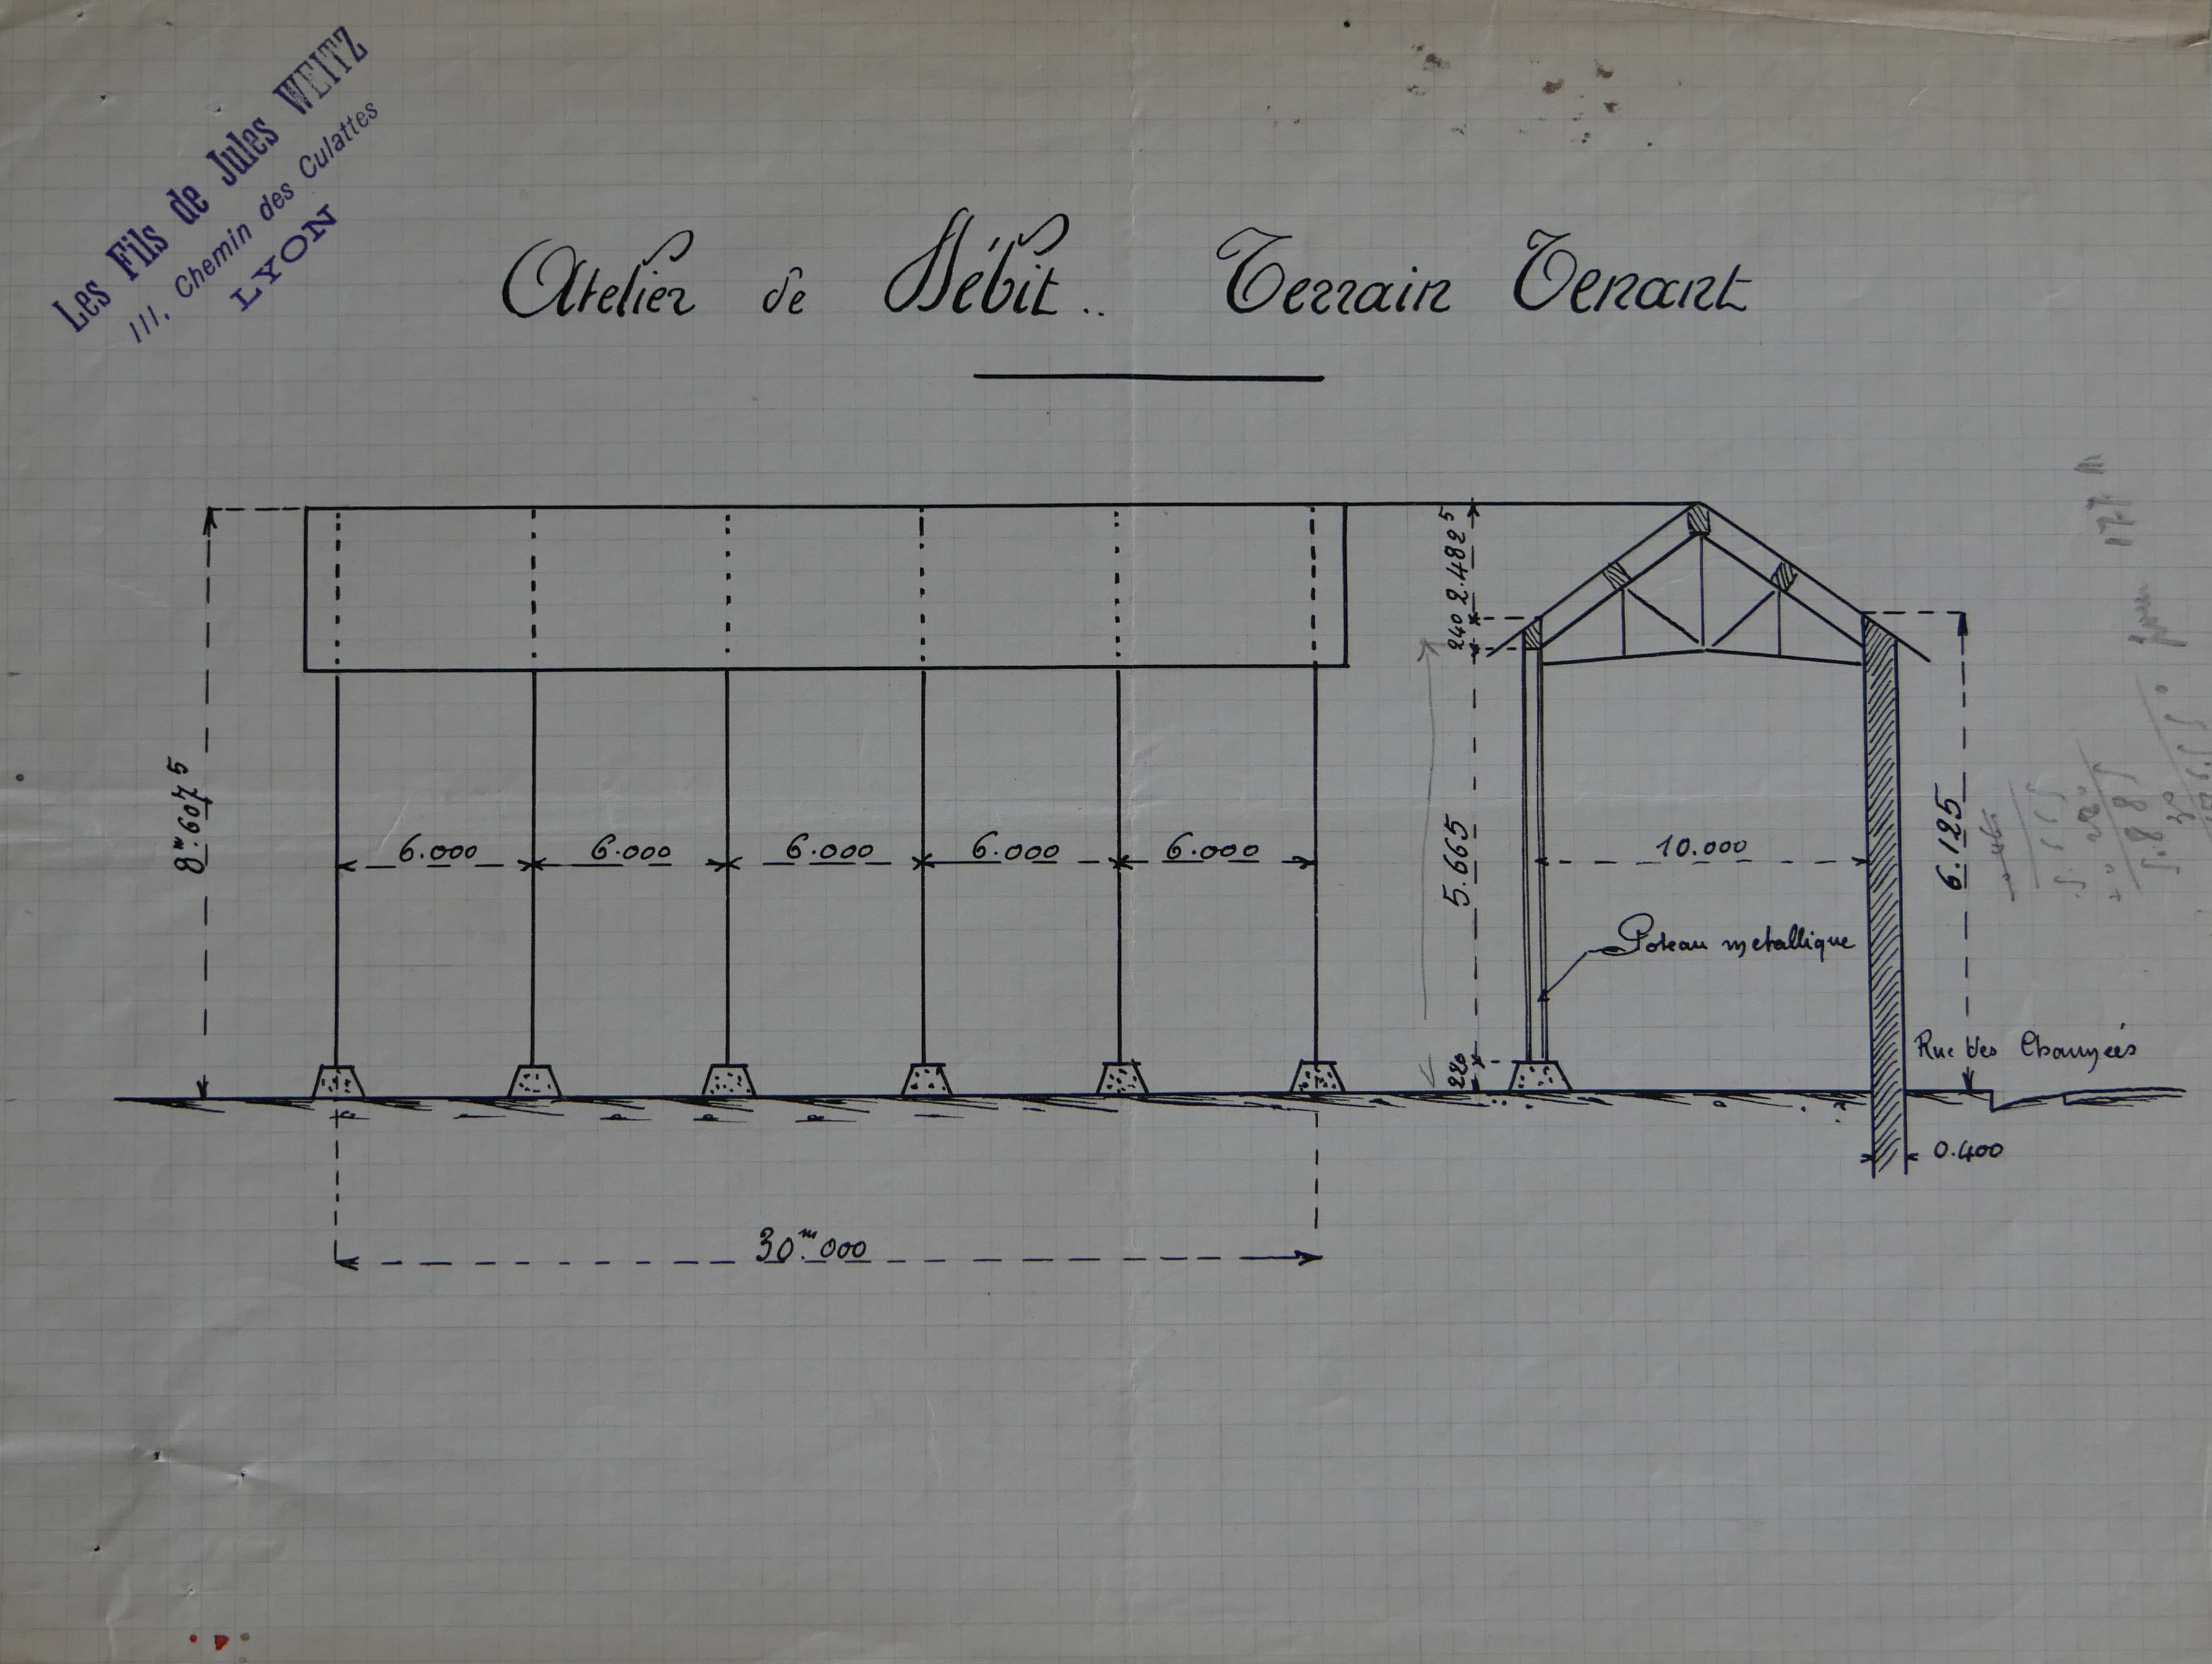 Les Fils de Jules WEITZ
111, Chemin des Culattes
LYON
Atelier de Débit.. Terrain Tenant
8.m607 5
6.000 6.000 6.000 6.000 6.000
30m.000
2.482 5
240
5.665
220
10.000
Poteau metallique
6.125
Rue des
0.400